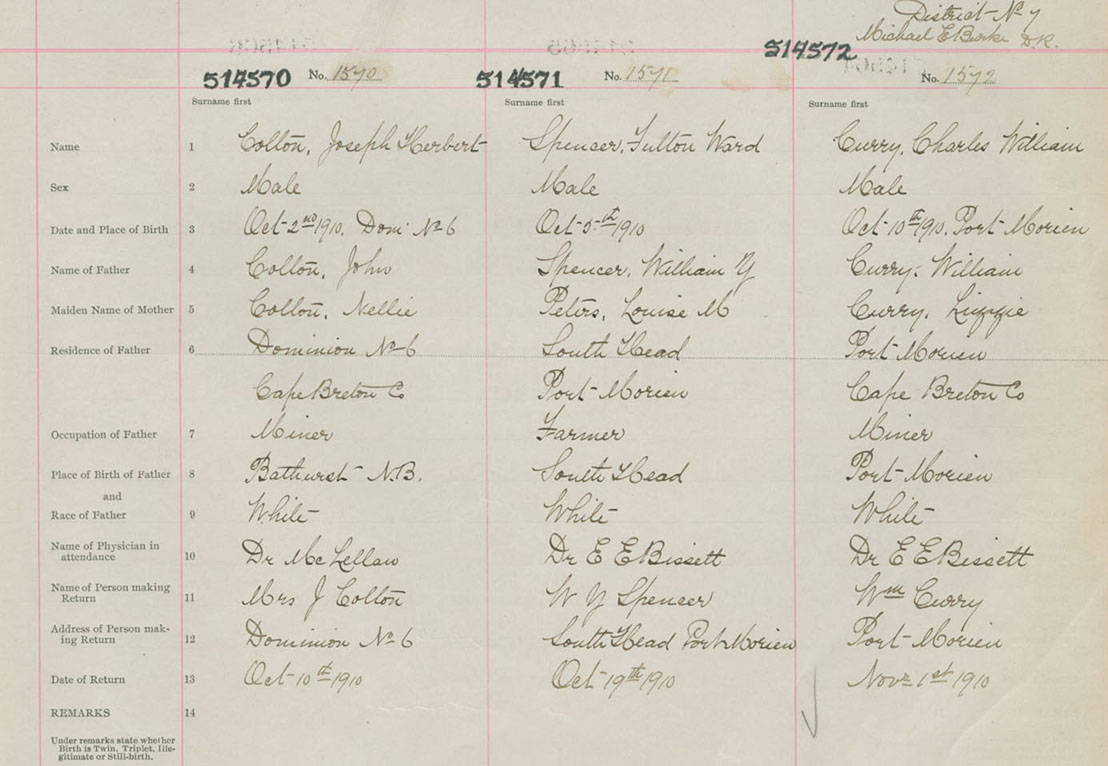 District No 7
Michael E Burke D.R.
514570 No. 1570 514571 No. 1571 514572 No. 1572
Surname first Surname first Surname first
Name 1 Colton, Joseph Herbert Spencer, Fulton Ward Curry, Charles William
Sex 2 Male Male Male
Date and Place of Birth 3 Oct 2nd 1910. Dom. No 6 Oct 5th 1910 Oct 10th 1910. Port Morien
Name of Father 4 Colton, John Spencer, William Y Curry, William
Maiden Name of Mother 5 Colton, Nellie Peters, Louise M Curry, Lizzie
Residence of Father 6 Dominion No 6 South Head Port Morien
Cape Breton Co Port Morien Cape Breton Co
Occupation of Father 7 Miner Farmer Miner
Place of Birth of Father 8 Bathurst N.B. South Head Port Morien
and
Race of Father 9 White White White
Name of Physician in
attendance 10 Dr McLellan Dr E E Bissett Dr E E Bissett
Name of Person making
Return 11 Mrs J Colton W Y Spencer Wm Curry
Address of Person mak-
ing Return 12 Dominion No 6 South Head Port Morien Port Morien
Date of Return 13 Oct 10th 1910 Oct 19th 1910 Nov 1st 1910
REMARKS 14
Under remarks state whether
Birth is Twin, Triplet, Ille-
gitimate or Still-birth.